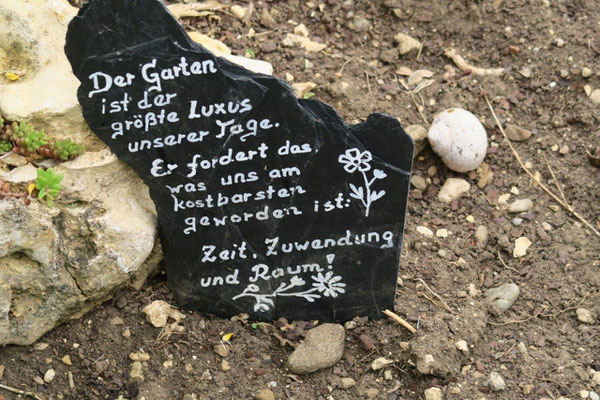 Der Garten
ist der
größte Luxus
unserer Tage.
Er fordert das
was uns am
kostbarsten
geworden ist:
Zeit, Zuwendung
und Raum!